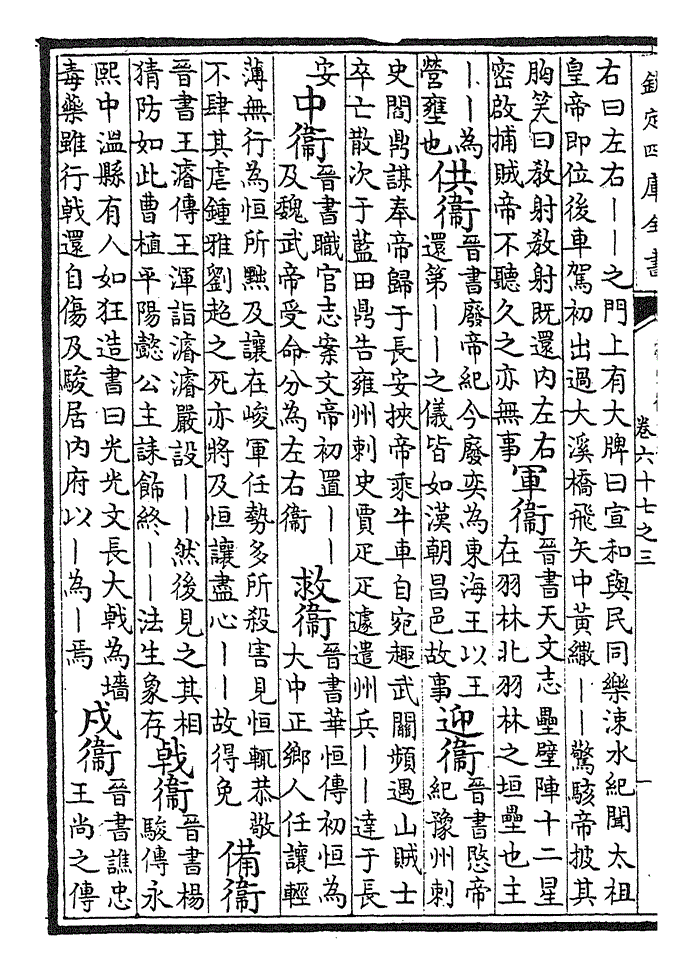 欽定四庫全書
卷六十七之三
一
右曰左右丨丨之門上有大牌曰宣和與民同樂涑水紀聞太祖
皇帝即位後車駕初出過大溪橋飛矢中黃繖丨丨驚駭帝披其
胸笑曰教射教射既還内左右
密啟捕賊帝不聽久之亦無事
軍衞
晉書天文志壘壁陣十二星
在羽林北羽林之垣壘也主
丨丨為
營壅也
供衞
晉書廢帝紀今廢奕為東海王以王
還第丨丨之儀皆如漢朝昌邑故事
迎衞
晉書愍帝
紀豫州刺
史閻鼎謀奉帝歸于長安挾帝乘牛車自宛趣武關頻遇山賊士
卒亡散次于藍田鼎告雍州刺史賈疋疋遽遣州兵丨丨達于長
安
中衞
晉書職官志案文帝初置丨丨
及魏武帝受命分為左右衞
救衞
晉書華恒傳初恒為
大中正鄉人任讓輕
薄無行為恒所黜及讓在峻軍任勢多所殺害見恒輒恭敬
不肆其虐鍾雅劉超之死亦將及恒讓盡心丨丨故得免
備衞
晉書王濬傳王渾詣濬濬嚴設丨丨然後見之其相
猜防如此曹植平陽懿公主誄飾終丨丨法生象存
戟衞
晉書楊
駿傳永
熙中溫縣有人如狂造書曰光光文長大戟為墻
毒藥雖行戟還自傷及駿居内府以丨為丨焉
戍衞
晉書譙忠
王尚之傳